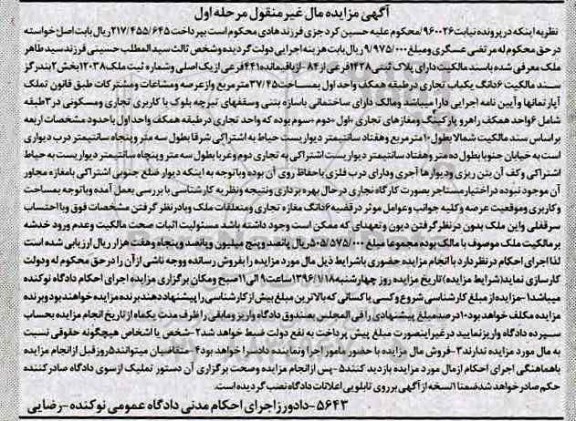 آگهی مزایده مال غیر منقول مرحله اول
نظر به اینکه در پرونده نیابت ۹۶۰۰۲۶/محکوم علیه حسین کرد جزی فرزند هادی محکوم است بپرداخت ۲۱۷/۴۵۵/۶۴۵ ریال بابت اصل خواسته
در حق محکوم له مرتضی عسگری و مبلغ ۹/۹۷۵/۰۰۰ ریال بابت هزینه اجرایی دولت گردیده و شخص ثالث سید المطلب حسینی فرزند سید طاهر
ملک معرفی شده باسند مالکیت دارای پلاک ثبتی ۱۴۲۸ فرعی از ۸۴ - از باقیمانده ۴۴۱ فرعی از یک اصلی و شماره ثبت ملک ۱۲۰۳۸ بخش ۲ بندر گز
سند مالکیت ۶ دانگ یکباب تجاری در طبقه همکف واحد اول بمساحت ۳۷/۴۵ متر مربع و از عرصه و مشاعات و مشترکات طبق قانون تملک
آپارتمانها و آیین نامه اجرایی دارا میباشد و مالک دارای ساختمانی با سازه بتنی و سقفهای تیرچه بلوک با کاربری تجاری و مسکونی در ۳ طبقه
شامل ۶ واحد همکف راهرو پارکینگ و مغازهای تجاری «اول» «دوم» «سوم بوده که واحد تجاری در طبقه همکف واحد اول با حدود مشخصات اربعه
بر اساس سند مالکیت شمالا بطول ۱۰ متر مربع و هفتاد سانتیمتر دیواریست حیاط به اشتراکی شرقا بطول سه متر و پنجاه سانتیمتر درب دیواری
است به خیابان جنوبا بطول ده متر و هفتاد سانتیمتر دیواریست اشتراکی به تجاری دوم و غربا بطول سه متر و پنجاه سانتیمتر دیواریست به حیاط
اشتراکی و کف آن بتن ریزی و دیوارها آجری و دارای درب فلزی با حفاظ روی آن بوده و با توجه به اینکه دیوار ضلع جنوبی اشتراکی با مغازه مجاور
آن موجود نبوده در اختیار مستاجر بصورت کارگاه نجاری در حال بهره برداری و نتیجه و نظریه کارشناسی با بررسی بعمل آمده و با توجه بمساحت
و کاربری و موقعیت عرصه و کلیه جوانب و عوامل موثر در قضیه ۶ دانگ مغازه تجاری و متعلقات ملک و با در نظر گرفتن مشخصات فوق و با احتساب
سرقفلی و این ملک بدون در نظر گرفتن دیون و تعهدای که ممکن است وجود داشته باشد مسئولیت اثبات صحت مالکیت و عدم ورود خدشه
بر مالکیت ملک موصوف با مالک بوده مجموعا مبلغ ۵۰۵/۵۷۵/۰۰۰ ریال پانصد و پنج میلیون و پانصد و پنجاه و هفت هزار ریال ارزیابی شده است
لذا اجرای احکام در نظر دارد با انجام مزایده حضوری با شرایط ذیل مال مورد مزایده را بفروش رسانده و وجه ناشی از آن را در حق محکوم له و دولت
کارسازی نماید (شرایط مزایده) تاریخ مزایده روز چهارشنبه ۱۳۹۶/۷/۱۸ ساعت ۹ الی ۱۱ صبح و مکان برگزاری مزایده اجرای احکام دادگاه نوکنده
میباشد ۱- مزایده از مبلغ کارشناسی شروع و کسی یا کسانی که بالاترین مبلغ بیش از کارشناسی را پیشنهاد دهند برنده مزایده خواهند بود و برنده
مزایده مکلف خواهد بود ۱۰ درصد مبلغ پیشنهادی را فی المجلس بصندوق دادگاه واریز و مابقی را ظرف مدت یکماه از تاریخ انجام مزایده بحساب
سپرده دادگاه واریز نمایید در غیر اینصورت مبلغ پیش پرداخت به نفع دولت ضبط خواهد شد ۲- شخص یا اشخاص هیچگونه حقوقی نسبت
به مال مورد مزایده ندارند ۳- فروش مال مورد مزایده با حضور مامور اجرا و نماینده دادسرا خواهد بود ۴- متقاضیان میتوانند ۵ روز قبل از انجام مزایده
با هماهنگی اجرای احکام از مال مورد مزایده بازدید کنند ۵- پس از انجام مزایده و صحت برگزاری آن دستور تملیک از سوی دادگاه صادر کننده
حکم صادر خواهد شد ضمنا نسخه از آگهی بر روی تابلویی اعلانات دادگاه نصب گردیده است.
۵۶۴۳- دادورز اجرای احکام مدنی دادگاه عمومی نوکنده - رضایی